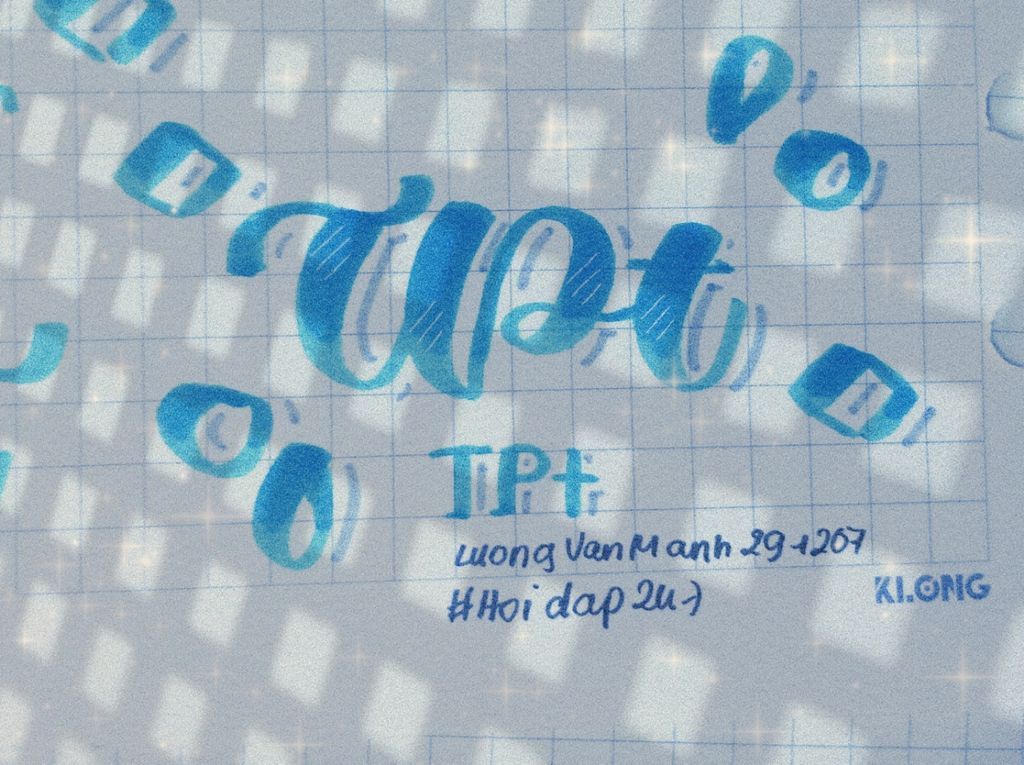 TPt
TPt
Luong Van Manh 29-1207
#Hoi dap 24)
KLONG